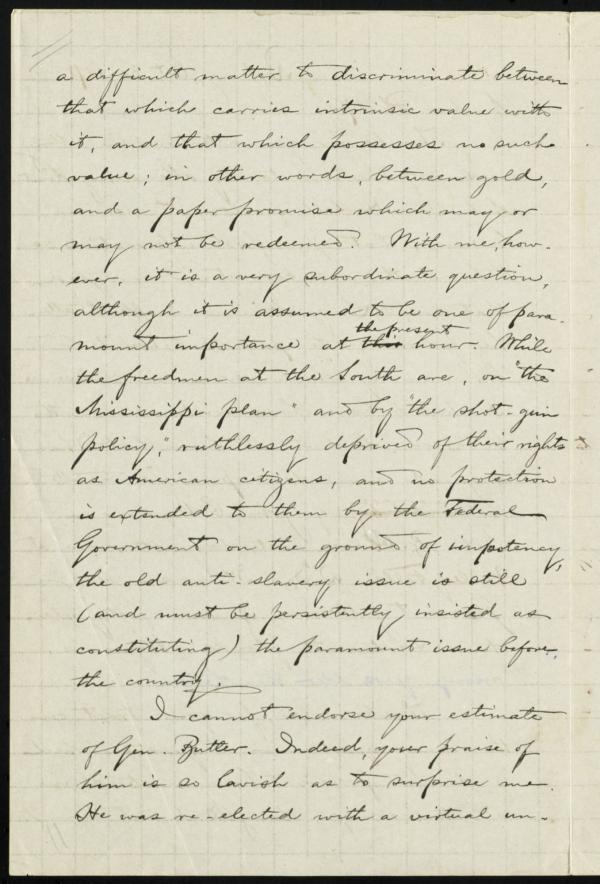 a difficult matter to discriminate between
that which carries intrinsic value with
it, and that which possesses no such
value; in other words, between gold,
and a paper promise which may or
may not be redeemed. With me, how-
ever, it is a very subordinate question,
although it is assumed to be one of para-
mount importance at this the present hour. While
the freedmen at the South are, on "the
Mississippi plan" and by "the shot-gun
policy," ruthlessly deprived of their rights
as American citizens, and no protection
is extended to them by the Federal
Government on the ground of impotency,
the old anti-slavery issue is still
(and must be persistently insisted as
constituting) the paramount issue before
the country.
I cannot endorse your estimate
of Gen. Butler. Indeed, your praise of
him is so lavish as to surprise me.
He was re-elected with a virtual un-